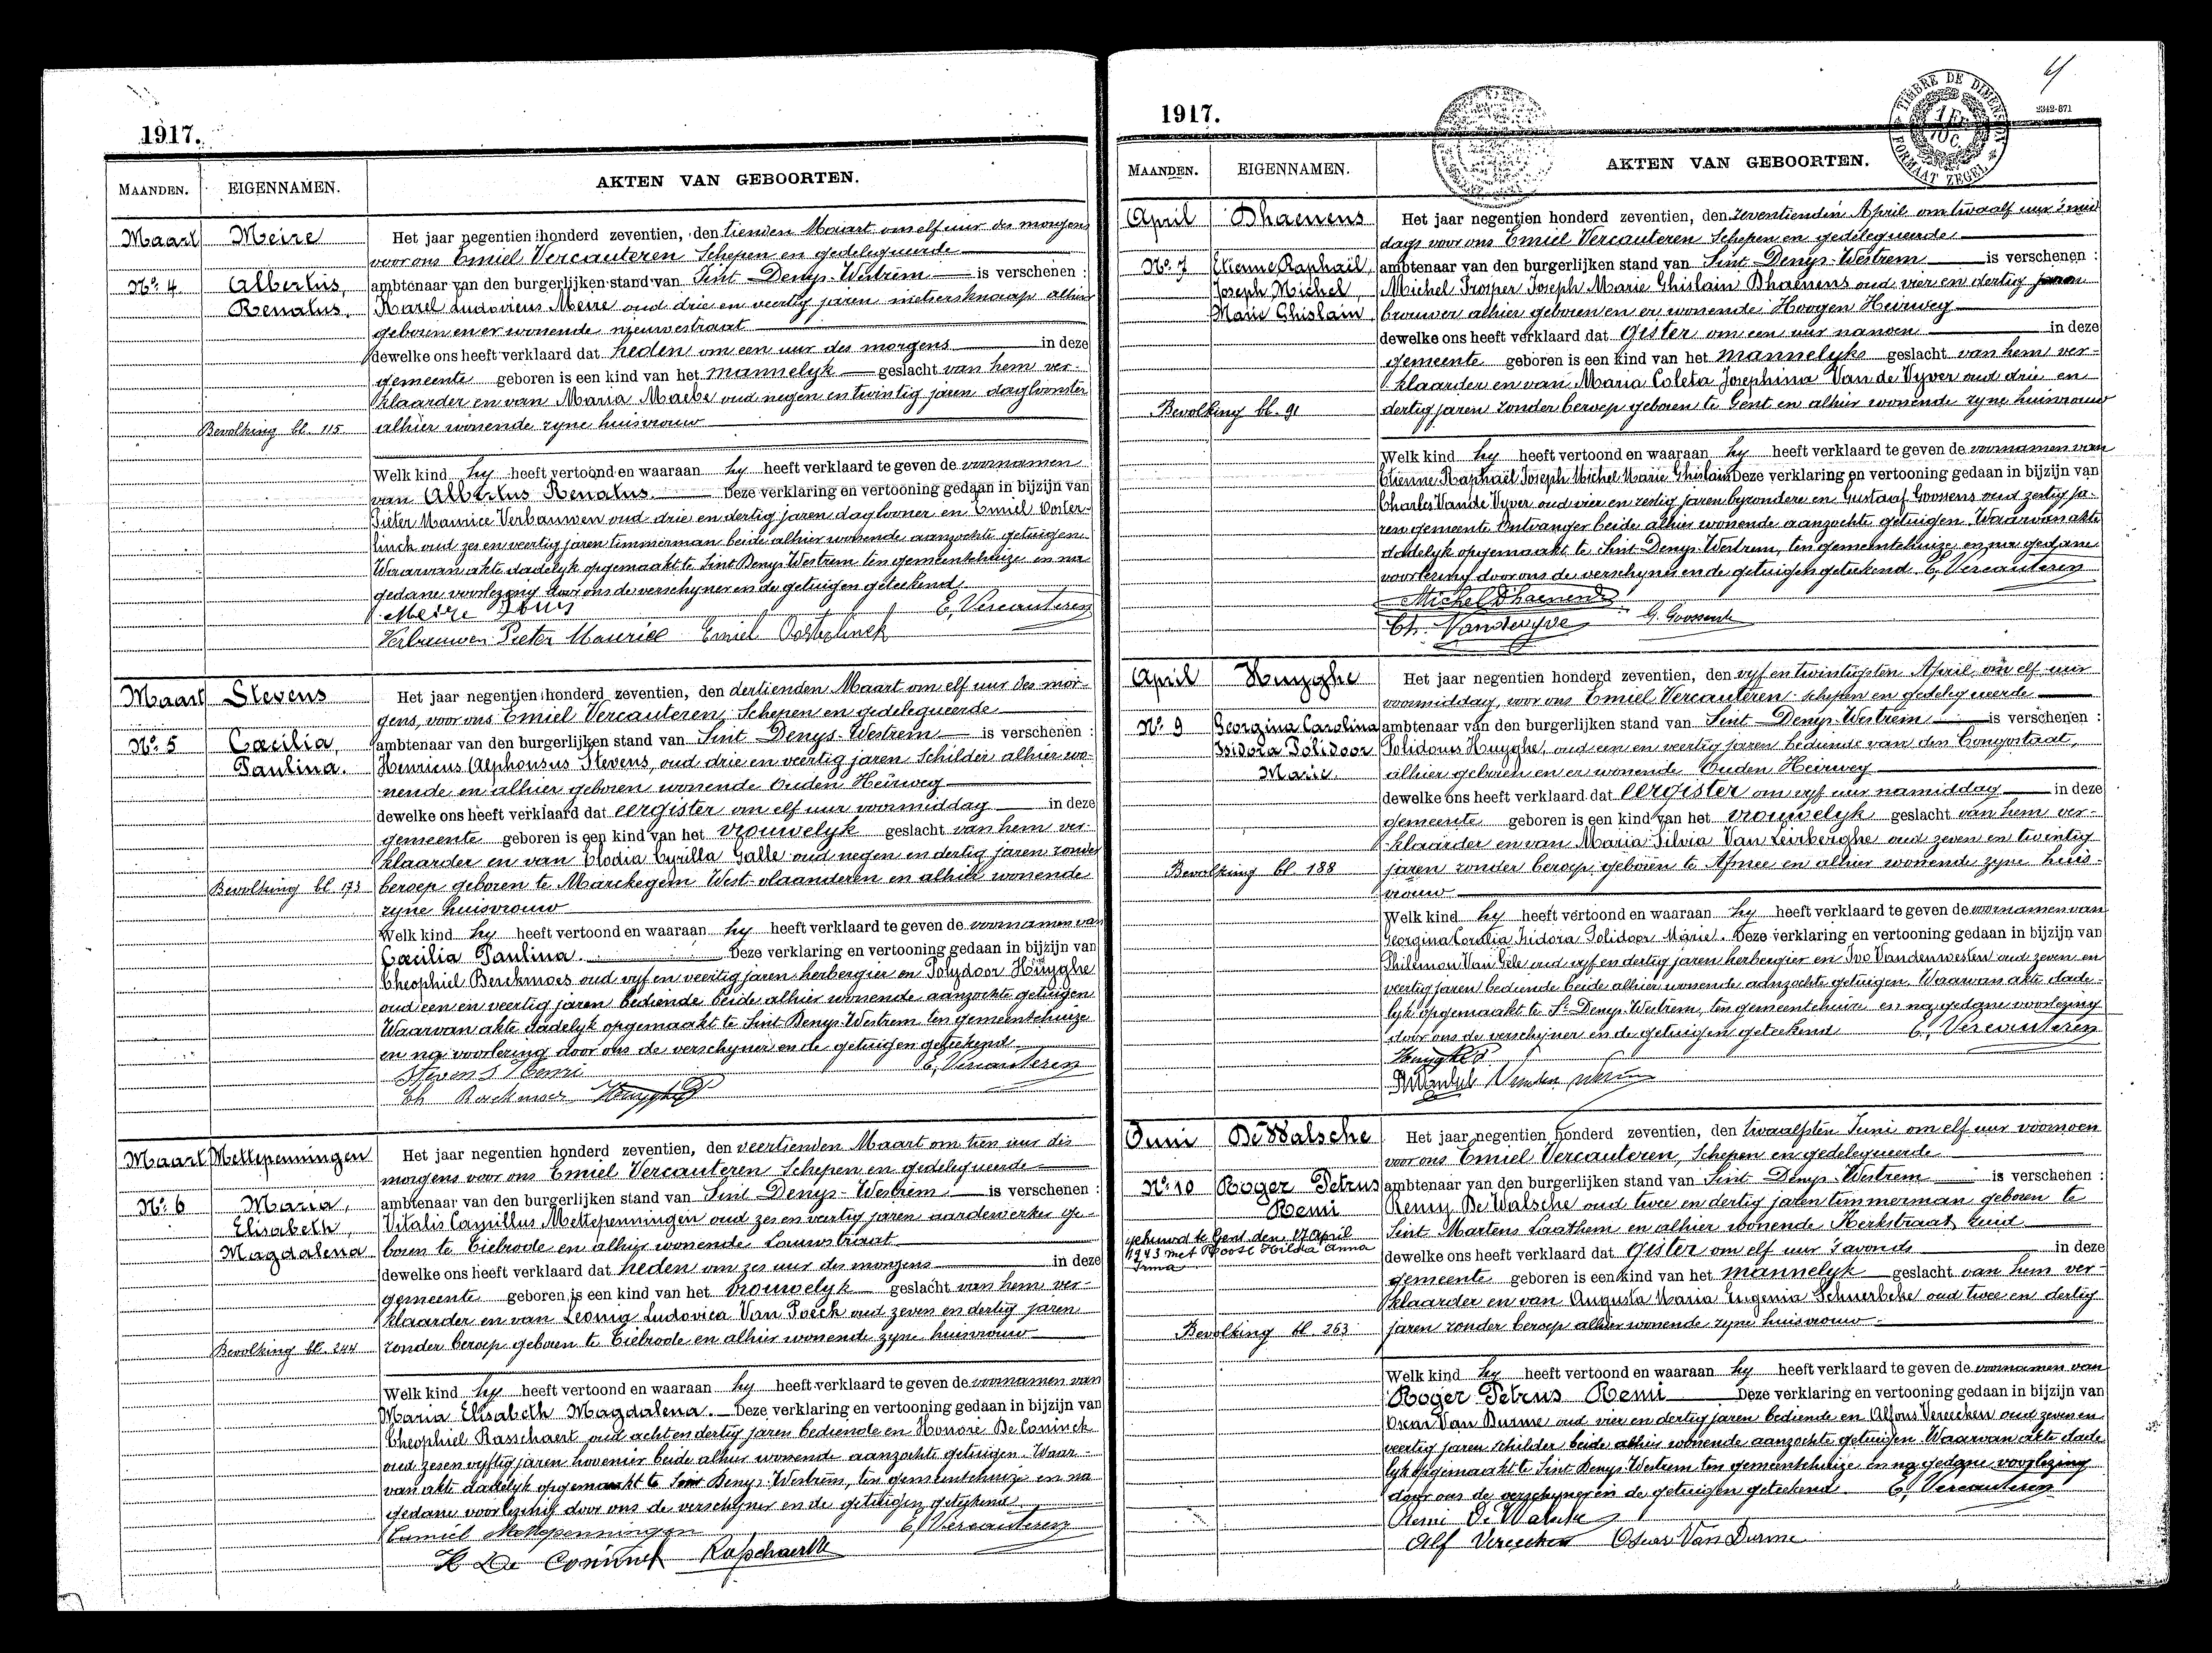 1917.
MAANDEN. EIGENNAMEN. AKTEN VAN GEBOORTEN.
Maart Meire Het jaar negentien honderd zeventien, den tienden Maart om elf uur des morgens
voor ons Emiel Vercauteren Schepen en gedelegueerde
No. 4 Albertus, ambtenaar van den burgerlijken stand van Sint-Denys-Westrem is verschenen :
Renatus. Karel Ludovicus Meire oud drie en veertig jaren metsersknaap alhier
geboren en er wonende nieuwestraat
dewelke ons heeft verklaard dat heden om een uur des morgens in deze
gemeente geboren is een kind van het mannelyk geslacht van hem ver-
klaarder en van Maria Maebe oud negen en twintig jaren dagloonster
Bevolking bl. 115. alhier wonende zyne huisvrouw
Welk kind hy heeft vertoond en waaraan hy heeft verklaard te geven de voornamen
van Albertus Renatus. Deze verklaring en vertooning gedaan in bijzijn van
Pieter Maurice Verbauwen oud drie en dertig jaren daglooner en Emiel Ooster-
linck oud zes en veertig jaren timmerman beide alhier wonende aanzochte getuigen.
Waarvan akte dadelyk opgemaakt te Sint Denys Westrem ten gemeentehuize en na
gedane voorlezing door ons de verschyner en de getuigen geteekend.
Meire Louis E. Vercauteren
Verbauwen Pieter Maurice Emiel Oosterlinck
Maart Stevens Het jaar negentien honderd zeventien, den dertienden Maart om elf uur des mor-
gens, voor ons Emiel Vercauteren, Schepen en gedelegueerde
No. 5 Cæcilia, ambtenaar van den burgerlijken stand van Sint-Denys-Westrem is verschenen :
Paulina. Henricus Alphonsus Stevens, oud drie en veertig jaren Schilder alhier wo-
nende en alhier geboren wonende Ouden Heirweg
dewelke ons heeft verklaard dat eergister om elf uur voormiddag in deze
gemeente geboren is een kind van het vrouwelyk geslacht van hem ver-
klaarder en van Elodia Cyrilla Galle oud negen en dertig jaren zonder
Bevolking bl. 173 beroep geboren te Marckegem West-vlaanderen en alhier wonende
zyne huisvrouw
Welk kind hy heeft vertoond en waaraan hy heeft verklaard te geven de voornamen van
Cæcilia Paulina. Deze verklaring en vertooning gedaan in bijzijn van
Theophiel Berckmoes oud vyf en veertig jaren herbergier en Polydoor Huyghe
oud een en veertig jaren bediende beide alhier wonende aanzochte getuigen
Waarvan akte dadelyk opgemaakt te Sint Denys-Westrem ten gemeentehuize
en na voorlezing door ons de verschyner en de getuigen geteekend.
Stevens Henri E. Vercauteren
Th Berckmoes Huyghe P
Maart Mettepenningen Het jaar negentien honderd zeventien, den veertienden Maart om tien uur des
morgens voor ons Emiel Vercauteren Schepen en gedelegueerde
No. 6 Maria, ambtenaar van den burgerlijken stand van Sint Denys-Westrem is verschenen :
Elisabeth, Vitalis Camillus Mettepenningen oud zes en veertig jaren aardewerker ge-
Magdalena boren te Tielrode en alhier wonende Lauwstraat
dewelke ons heeft verklaard dat heden om zes uur des morgens in deze
gemeente geboren is een kind van het vrouwelyk geslacht van hem ver-
klaarder en van Leonia Ludovica Van Poeck oud zeven en dertig jaren
Bevolking bl. 244 zonder beroep geboren te Tielrode en alhier wonende zyne huisvrouw
Welk kind hy heeft vertoond en waaraan hy heeft verklaard te geven de voornamen van
Maria Elisabeth Magdalena. Deze verklaring en vertooning gedaan in bijzijn van
Theophiel Rasschaert oud acht en dertig jaren bediende en Honoré De Coninck
oud zes en vyftig jaren hovenier beide alhier wonende aanzochte getuigen. Waar-
van akte dadelyk opgemaakt te Sint Denys-Westrem, ten gemeentehuize en na
gedane voorlezing door ons de verschyner en de getuigen geteekend
Camiel Mettepenningen E. Vercauteren
H De Coninck Rasschaert
1917.
TIMBRE DE DIMENSION
FORMAAT ZEGEL
2342-871
MAANDEN. EIGENNAMEN. AKTEN VAN GEBOORTEN.
April Dhaenens Het jaar negentien honderd zeventien, den zeventienden April om twaalf uur 's mid
dags voor ons Emiel Vercauteren Schepen en gedelegueerde
No. 7 Etienne Raphaël, ambtenaar van den burgerlijken stand van Sint-Denys-Westrem is verschenen :
Joseph Michel, Michel Prosper Joseph Marie Ghislain Dhaenens oud vier en dertig jaren
Marie Ghislain, brouwer alhier geboren en er wonende Hoogen Heirweg
dewelke ons heeft verklaard dat gister om een uur nanoen in deze
gemeente geboren is een kind van het mannelyks geslacht van hem ver-
klaarder en van Maria Coleta Josephina Van de Vyver oud drie en
Bevolking bl. 91 dertig jaren zonder beroep geboren te Gent en alhier wonende zyne huisvrouw
Welk kind hy heeft vertoond en waaraan hy heeft verklaard te geven de voornamen van
Etienne Raphaël Joseph Michel Marie Ghislain Deze verklaring en vertooning gedaan in bijzijn van
Charles Vande Vyver oud vier en zestig jaren byzondere en Gustaaf Goossens oud zestig ja-
ren gemeente Ontvanger beide alhier wonende aanzochte getuigen. Waarvan akte
dadelyk opgemaakt te Sint-Denys-Westrem, ten gemeentehuize en na gedane
voorlezing door ons de verschyner en de getuigen geteekend. E. Vercauteren
Michel Dhaenens
Ch. Vandevyve G. Goossens
April Huyghe Het jaar negentien honderd zeventien, den vyf en twintigsten April om elf uur
voormiddag, voor ons Emiel Vercauteren schepen en gedelegueerde
No. 9 Georgina Carolina ambtenaar van den burgerlijken stand van Sint-Denys-Westrem is verschenen :
Isidora Polidoor Polidorus Huyghe, oud een en veertig jaren bediende van den Congostaat,
Marie. alhier geboren en er wonende Ouden Heirweg
dewelke ons heeft verklaard dat eergister om vyf uur namiddag in deze
gemeente geboren is een kind van het vrouwelyk geslacht van hem ver-
klaarder en van Maria Silvia Van Leirberghe oud zeven en twintig
Bevolking bl. 188 jaren zonder beroep geboren te Afsnee en alhier wonende zyne huis-
vrouw
Welk kind hy heeft vertoond en waaraan hy heeft verklaard te geven de voornamen van
Georgina Isidora Polidoor Marie. Deze verklaring en vertooning gedaan in bijzijn van
Philemon Van Gele oud vyf en dertig jaren herbergier en Ivo Vandenwesten oud zeven en
veertig jaren bediende beide alhier wonende aanzochte getuigen. Waarvan akte dade-
lyk opgemaakt te St-Denys-Westrem, ten gemeentehuize en na gedane voorlezing
door ons de verschijner en de getuigen geteekend E. Vercauteren
Huyghe P
Juni De Walsche Het jaar negentien honderd zeventien, den twaalfsten Juni om elf uur voornoen
voor ons Emiel Vercauteren, Schepen en gedelegueerde
No. 10 Roger Petrus ambtenaar van den burgerlijken stand van Sint-Denys-Westrem is verschenen :
Remi Remy De Walsche oud twee en dertig jaren timmerman geboren te
gehuwd te Gent den 17 April Sint Martens Laathem en alhier wonende Kerkstraat zuid
1943 met Roose Hilda Anna dewelke ons heeft verklaard dat gister om elf uur 's avonds in deze
Irma
gemeente geboren is een kind van het mannelyk geslacht van hem ver-
klaarder en van Augusta Maria Eugenia Schuerbeke oud twee en dertig
Bevolking bl. 263 jaren zonder beroep alhier wonende zyne huisvrouw
Welk kind hy heeft vertoond en waaraan hy heeft verklaard te geven de voornamen van
Roger Petrus Remi Deze verklaring en vertooning gedaan in bijzijn van
Oscar Van Durme oud vier en dertig jaren bediende en Alfons Vereecken oud zeven en
veertig jaren schilder beide alhier wonende aanzochte getuigen. Waarvan akte dade
lyk opgemaakt te Sint Denys Westrem ten gemeentehuize en na gedane voorlezing
door ons de verschyner en de getuigen geteekend. E. Vercauteren
Remi De Walsche
Alf Vereecken Oscar Van Durme